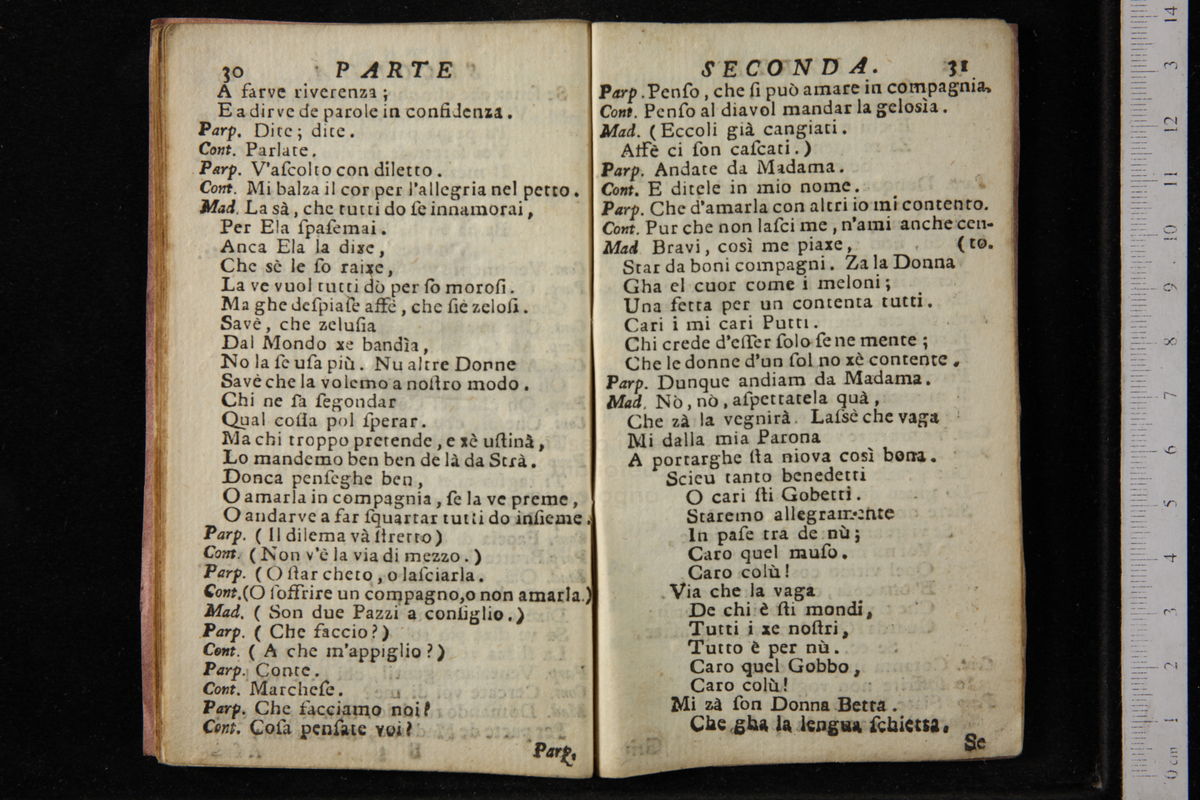 30 PARTE
A farve riverenza;
E a dirve de parole in confidenza.
Parp. Dite; dite.
Cont. Parlate.
Parp. V'aſcolto con diletto.
Cont. Mi balza il cor per l'allegria nel petto.
Mad. La sà, che tutti do ſe innamorai,
Per Ela ſpaſemai.
Anca Ela la dixe,
Che sè le ſo raixe,
La ve vuol tutti dò per ſo moroſi.
Ma ghe deſpiaſe affè, che ſiè zeloſi.
Savè, che zeluſia
Dal Mondo xe bandìa,
No la ſe uſa più. Nu altre Donne
Savè che la volemo a noſtro modo.
Chi ne ſa ſegondar
Qual coſſa pol ſperar.
Ma chi troppo pretende, e xè uſtinà,
Lo mandemo ben ben de là da Strà.
Donca penſeghe ben,
O amarla in compagnia, ſe la ve preme,
O andarve a far ſquartar tutti do inſieme.
Parp. (Il dilema và ſtretto)
Cont. (Non v'è la via di mezzo.)
Parp. (O ſtar cheto, o laſciarla.
Cont. (O ſoffrire un compagno, o non amarla.)
Mad. (Son due Pazzi a conſiglio.)
Parp. (Che faccio?)
Cont. (A che m'appiglio?)
Parp. Conte.
Cont. Marcheſe.
Parp. Che facciamo noi?
Cont. Coſa penſate voi?
Parp.
SECONDA. 31
Parp. Penſo, che ſi può amare in compagnia.
Cont. Penſo al diavol mandar la gelosìa.
Mad. (Eccoli già cangiati.
Affè ci ſon caſcati.)
Parp. Andate da Madama.
Cont. E ditele in mio nome.
Parp. Che d'amarla con altri io mi contento.
Cont. Pur che non laſci me, n'ami anche cen-
Mad. Bravi, così me piaxe, (to.
Star da boni compagni. Za la Donna
Gha el cuor come i meloni;
Una fetta per un contenta tutti.
Cari i mi cari Putti.
Chi crede d'eſſer ſolo ſe ne mente;
Che le donne d'un ſol no xè contente.
Parp. Dunque andiam da Madama.
Mad. Nò, nò, aſpettatela quà,
Che zà la vegnirà. Laſsè che vaga
Mi dalla mia Parona
A portarghe ſta niova così bona.
Scieu tanto benedetti
O cari ſti Gobetti.
Staremo allegramente
In paſe tra de nù;
Caro quel muſo.
Caro colù!
Via che la vaga
De chi è ſti mondi,
Tutti i xe noſtri,
Tutto è per nù.
Caro quel Gobbo,
Caro colù!
Mi zà ſon Donna Betta.
Che gha la lengua ſchietta.
Se